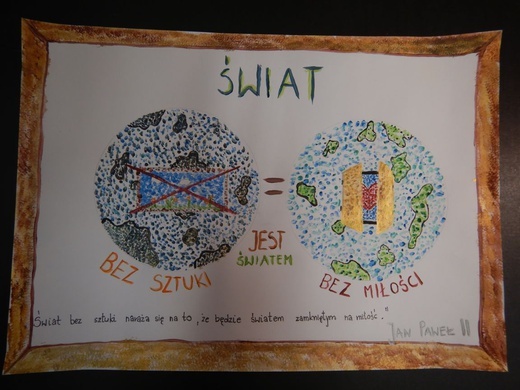 ŚWIAT
BEZ SZTUKI
=
JEST
ŚWIATEM
BEZ MIŁOŚCI
Świat bez sztuki naraża się na to, że będzie światem zamkniętym na miłość."
JAN PAWEŁ II